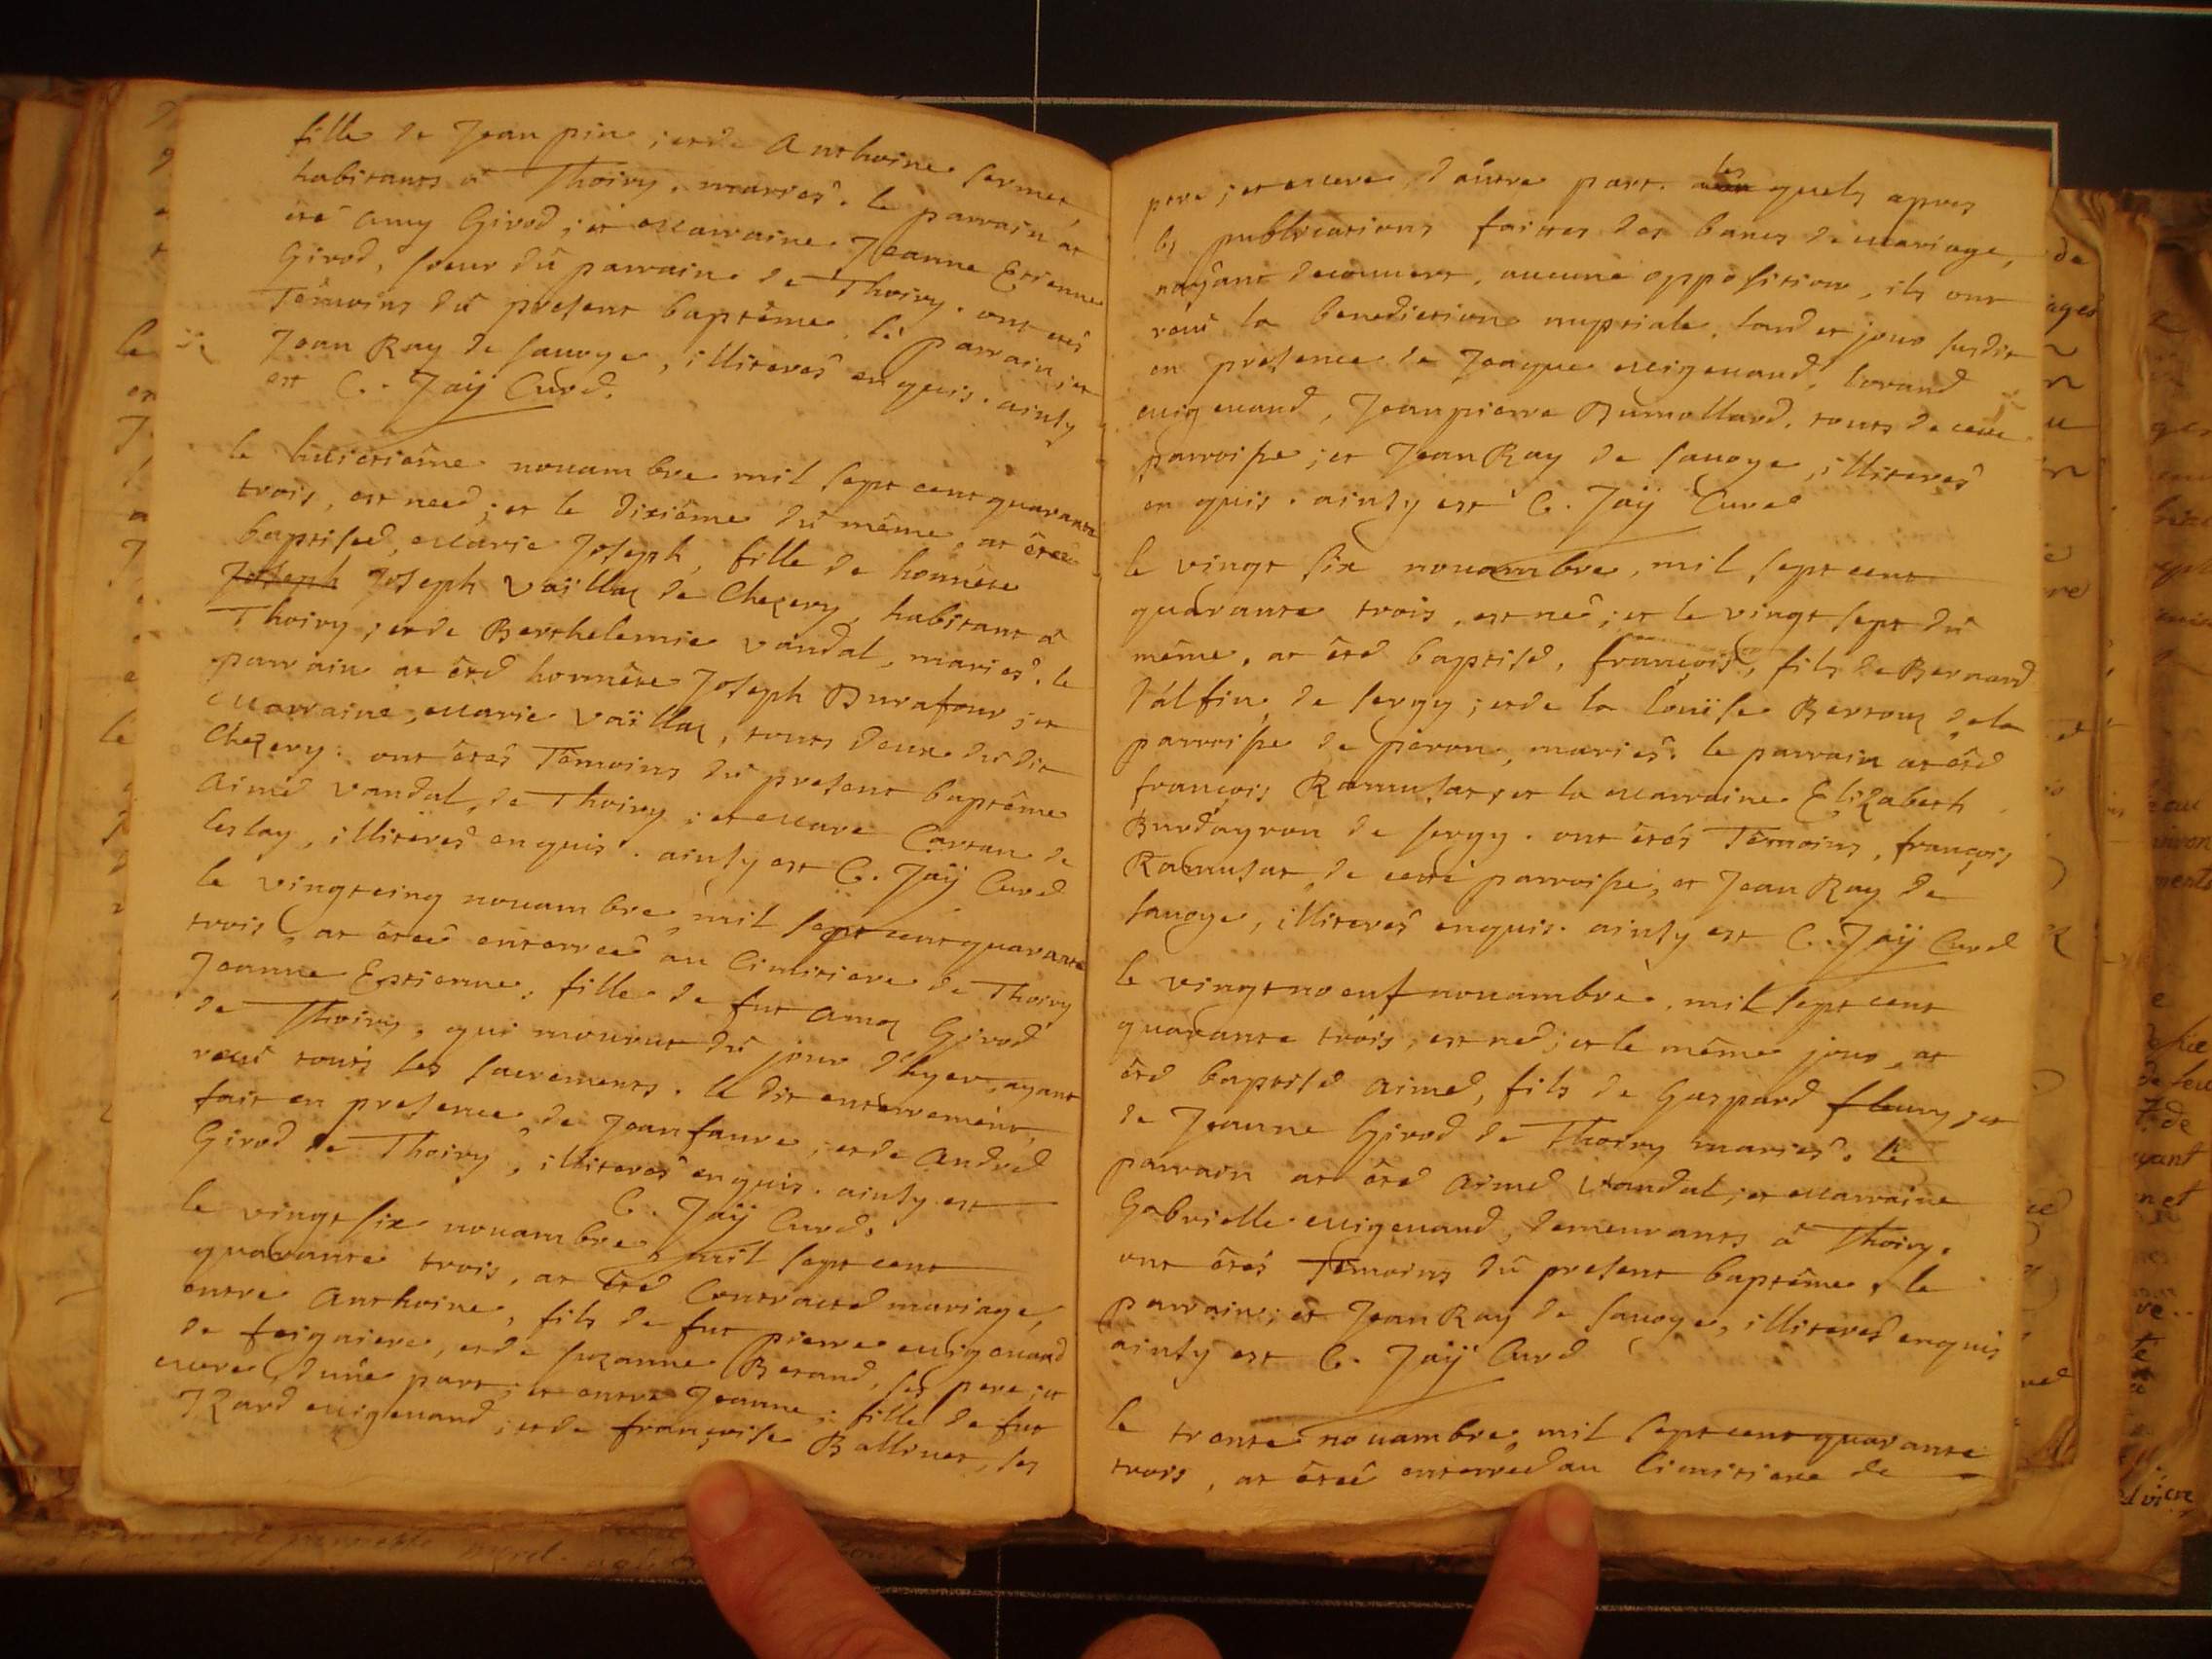 fille de Jean pin ; et de Anthoine sermet,
habitants a Thoiry, mariés. le parrain at
été amy Girod ; et marraine Jeanne Etienne
Girod, soeur dû parrain de Thoiry. ont etés
Têmoins dû present baptême, le parrain ; et
Jean Ray de savoye, illiterés enquis. ainsy
est C. Jaÿ Curé.
le huictiême novambre mil sept cent quarante
trois, est neé ; et le dixiême dû même, at êteé
baptiseé, Marie Joseph, fille de honnête
Joseph Joseph Vaïllaz de Chezery, habitant â
Thoiry ; et de Berthelemie Vandal, mariés. le
parrain at êté honnête Joseph Durafour ; et
Marraine, Marie Vaïllaz, touts deux dû dit
Chezery. ont êtés Têmoins dû present baptême
Aimé Vandal de Thoiry ; et Marc Cartan de
leslay, illiterés enquis. ainsy est C. Jaÿ Curé
le vingtcinq novambre mil sept cent quarante
trois, at êteé enterreé au Cimitiere de Thoiry
Jeanne Estienne, fille de fut Amoz Girod
de Thoiry, qui mourut dû jour d'hyer, ayant
reçû touts les sacrements. le dit enterrement
fait en presence de Jean faure ; et de André
Girod de Thoiry, illiterés enquis. ainsy est
C. Jaÿ Curé.
le vingt six novambre mil sept cent
quarante trois, at êté Contracté mariage,
entre Anthoine, fils de fut pierre Migevand
de feigniere, et de suzanne Berand, ses pere ; et
mere, d'unê part ; et entre Jeanne ; fille de fut
Izard Migevand ; et de françoise Ballivet, ses
pere ; et mere, d'aûtre part. les quels apres
les publications faittes des bancs de mariage,
nayant decouvert, aucune opposition, ils ont
reçû la benediction nuptiale, l'an et jour susdit
en presence de Jonaque Migevand, lorand
Migevand, Jean pierre Dumollard, touts de cette
parroisse ; et Jean Ray de savoye, illiterés
enquis. ainsy est C. Jaÿ Curé
le vingt six novambre, mil sept cent
quarante trois, est né ; et le vingt sept dû
même, at êté baptisé, françois, fils de Bernard
Dálfin de sergy ; et de la louïse Bertouz de la
parroisse de péron, mariés. le parrain at êté
françois Ramusat ; et la marraine Elizabeth
Burdayron de sergy. ont êtés Têmoins, françois
Ramusat de cette parroisse, et Jean Ray de
savoye, illiterés enquis. ainsy est C. Jaÿ Curé
le vingtneuf novambre, mil sept cent
quarante trois, est né ; et le même jour, at
êté baptisé Aimé, fils de Gaspard fleury ; et
de Jeanne Girod de Thoiry mariés. le
parrain at êté Aimé Vandal ; et marraine
Gabrielle Migevand, demeurants â Thoiry.
ont êtés Têmoins dû present baptême, le
parrain ; et Jean Ray de savoye, illiterés enquis
ainsy est C. Jaÿ Curé
le trente novambre mil sept cent quarante
trois, at êteé enterreé au Cimitiere de